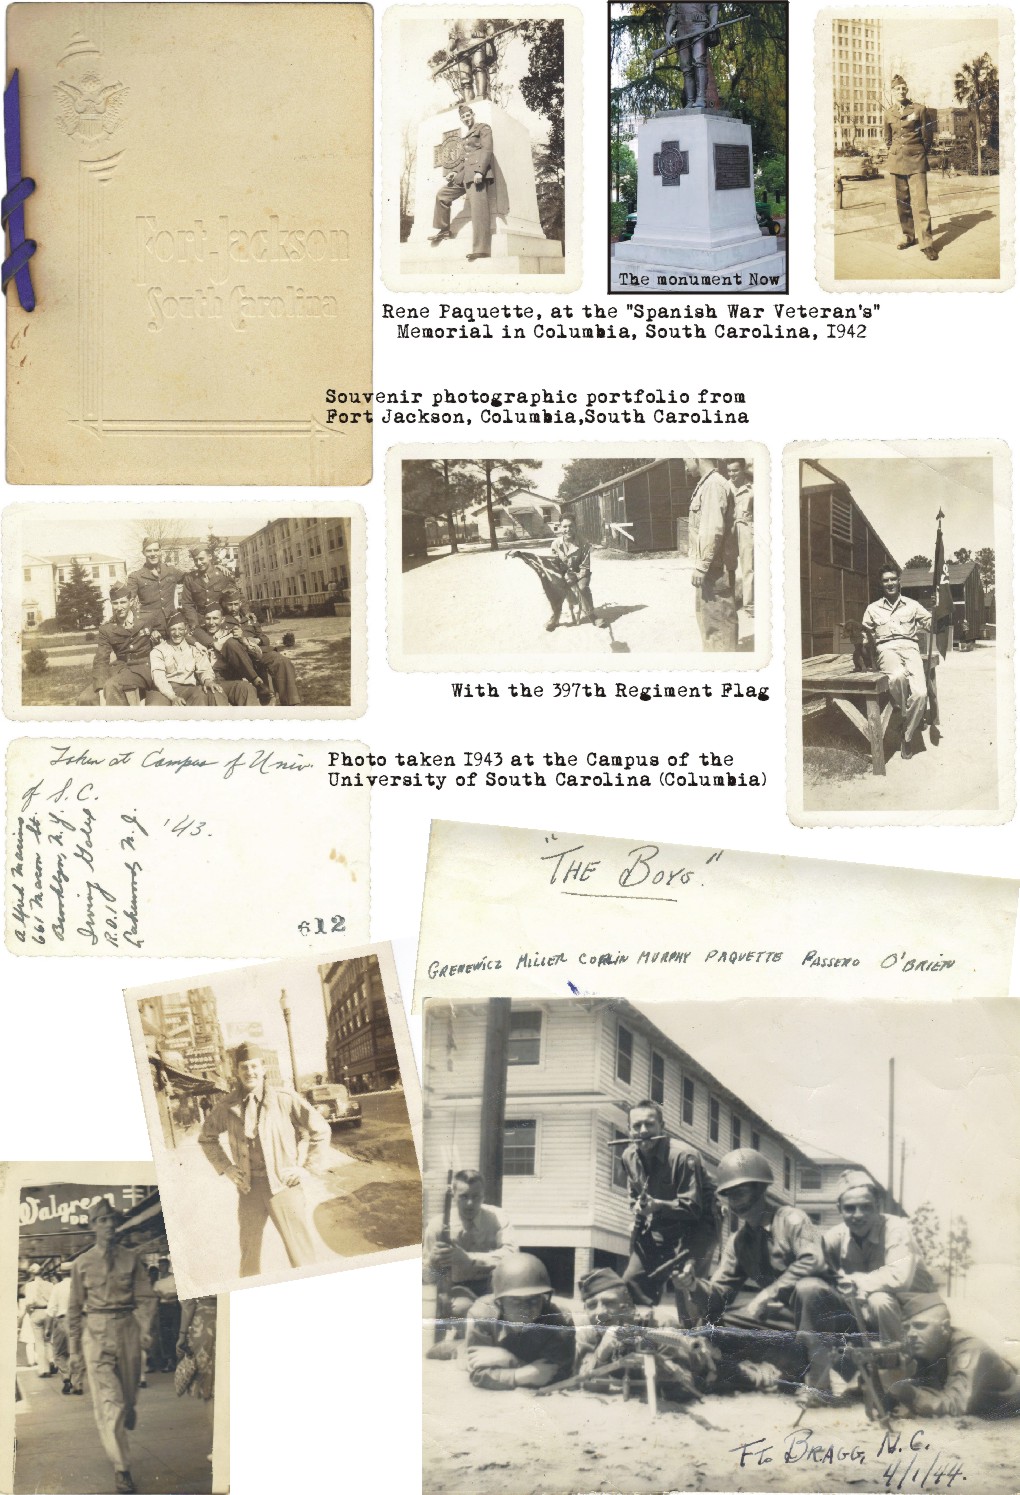 Fort Jackson
South Carolina
The monument Now
Rene Paquette, at the "Spanish War Veteran's"
Memorial in Columbia, South Carolina, 1942
Souvenir photographic portfolio from
Fort Jackson, Columbia,South Carolina
With the 397th Regiment Flag
Photo taken 1943 at the Campus of the
University of South Carolina (Columbia)
Taken at Campus of Univ.
of S.C.
'43.
Alfred Marino
661 Macon St.
Brooklyn, N.Y.
Irving
R.D.1
Lakewood, N.J.
612
"THE BOYS."
GRENEWICZ MILLER MURPHY PAQUETTE PASSERO O'BRIEN
Walgreen
DR
DRUGS
FT. BRAGG, N.C.
4/1/44.